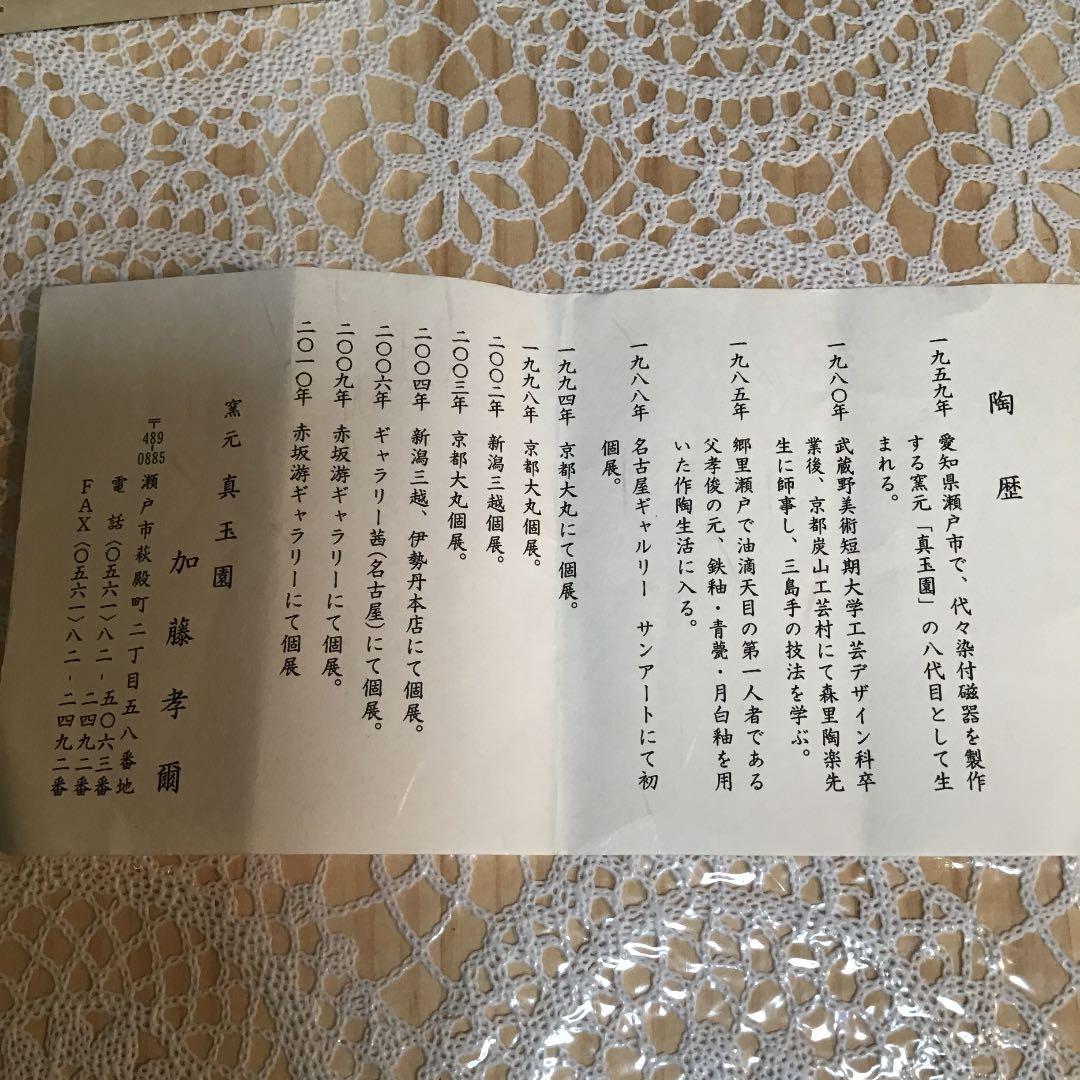 陶歴
一九五九年 愛知県瀬戸市で、代々染付磁器を製作
する窯元「真玉園」の八代目として生
まれる。
一九八〇年 武蔵野美術短期大学工芸デザイン科卒
業後、京都炭山工芸村にて森里陶楽先
生に師事し、三島手の技法を学ぶ。
一九八五年 郷里瀬戸で油滴天目の第一人者である
父孝俊の元、鉄釉・青甆・月白釉を用
いた作陶生活に入る。
一九八八年 名古屋ギャルリー サンアートにて初
個展。
一九九四年 京都大丸にて個展。
一九九八年 京都大丸個展。
二〇〇二年 新潟三越個展。
二〇〇三年 京都大丸個展。
二〇〇四年 新潟三越、伊勢丹本店にて個展。
二〇〇六年 ギャラリー茜(名古屋)にて個展。
二〇〇九年 赤坂游ギャラリーにて個展。
二〇一〇年 赤坂游ギャラリーにて個展
窯元 真玉園
加藤孝爾
〒489-0885 瀬戸市萩殿町二丁目五八番地
電話(〇五六一)八二-五〇六三番
二四九二番
FAX(〇五六一)八二-二四九二番